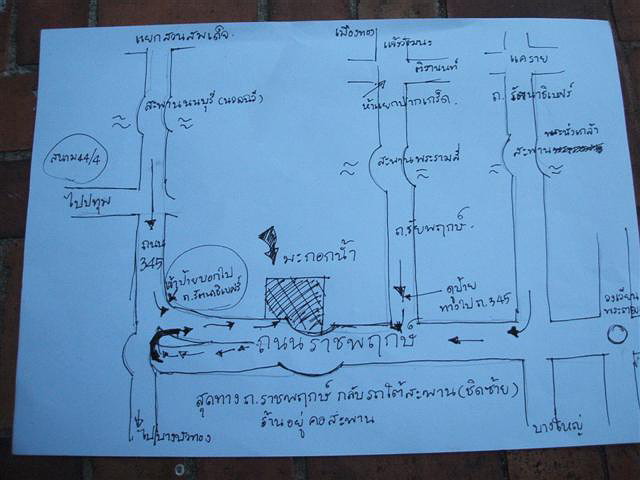 แยกสวนสมเด็จ
เมืองทอง
แจ้งวัฒนะ
ติวานนท์
แคราย
สะพานนนทบุรี (นวลฉวี)
ห้าแยกปากเกร็ด
ถ. รัตนาธิเบศร์
สนาม 44/4
สะพานพระรามสี่
สะพานพระนั่งเกล้า
ไปปทุม
ถนน
345
ถ.ชัยพฤกษ์
มะกอกน้ำ
ป้ายบอกไป
ถ.รัตนาธิเบศร์
ดูป้าย
ทางไป ถ.345
วงเวียน
ถนนราชพฤกษ์
สุดทาง ถ.ราชพฤกษ์ กลับรถใต้สะพาน (ชิดซ้าย)
ร้านอยู่ คอสะพาน
ไปบางบัวทอง
บางใหญ่